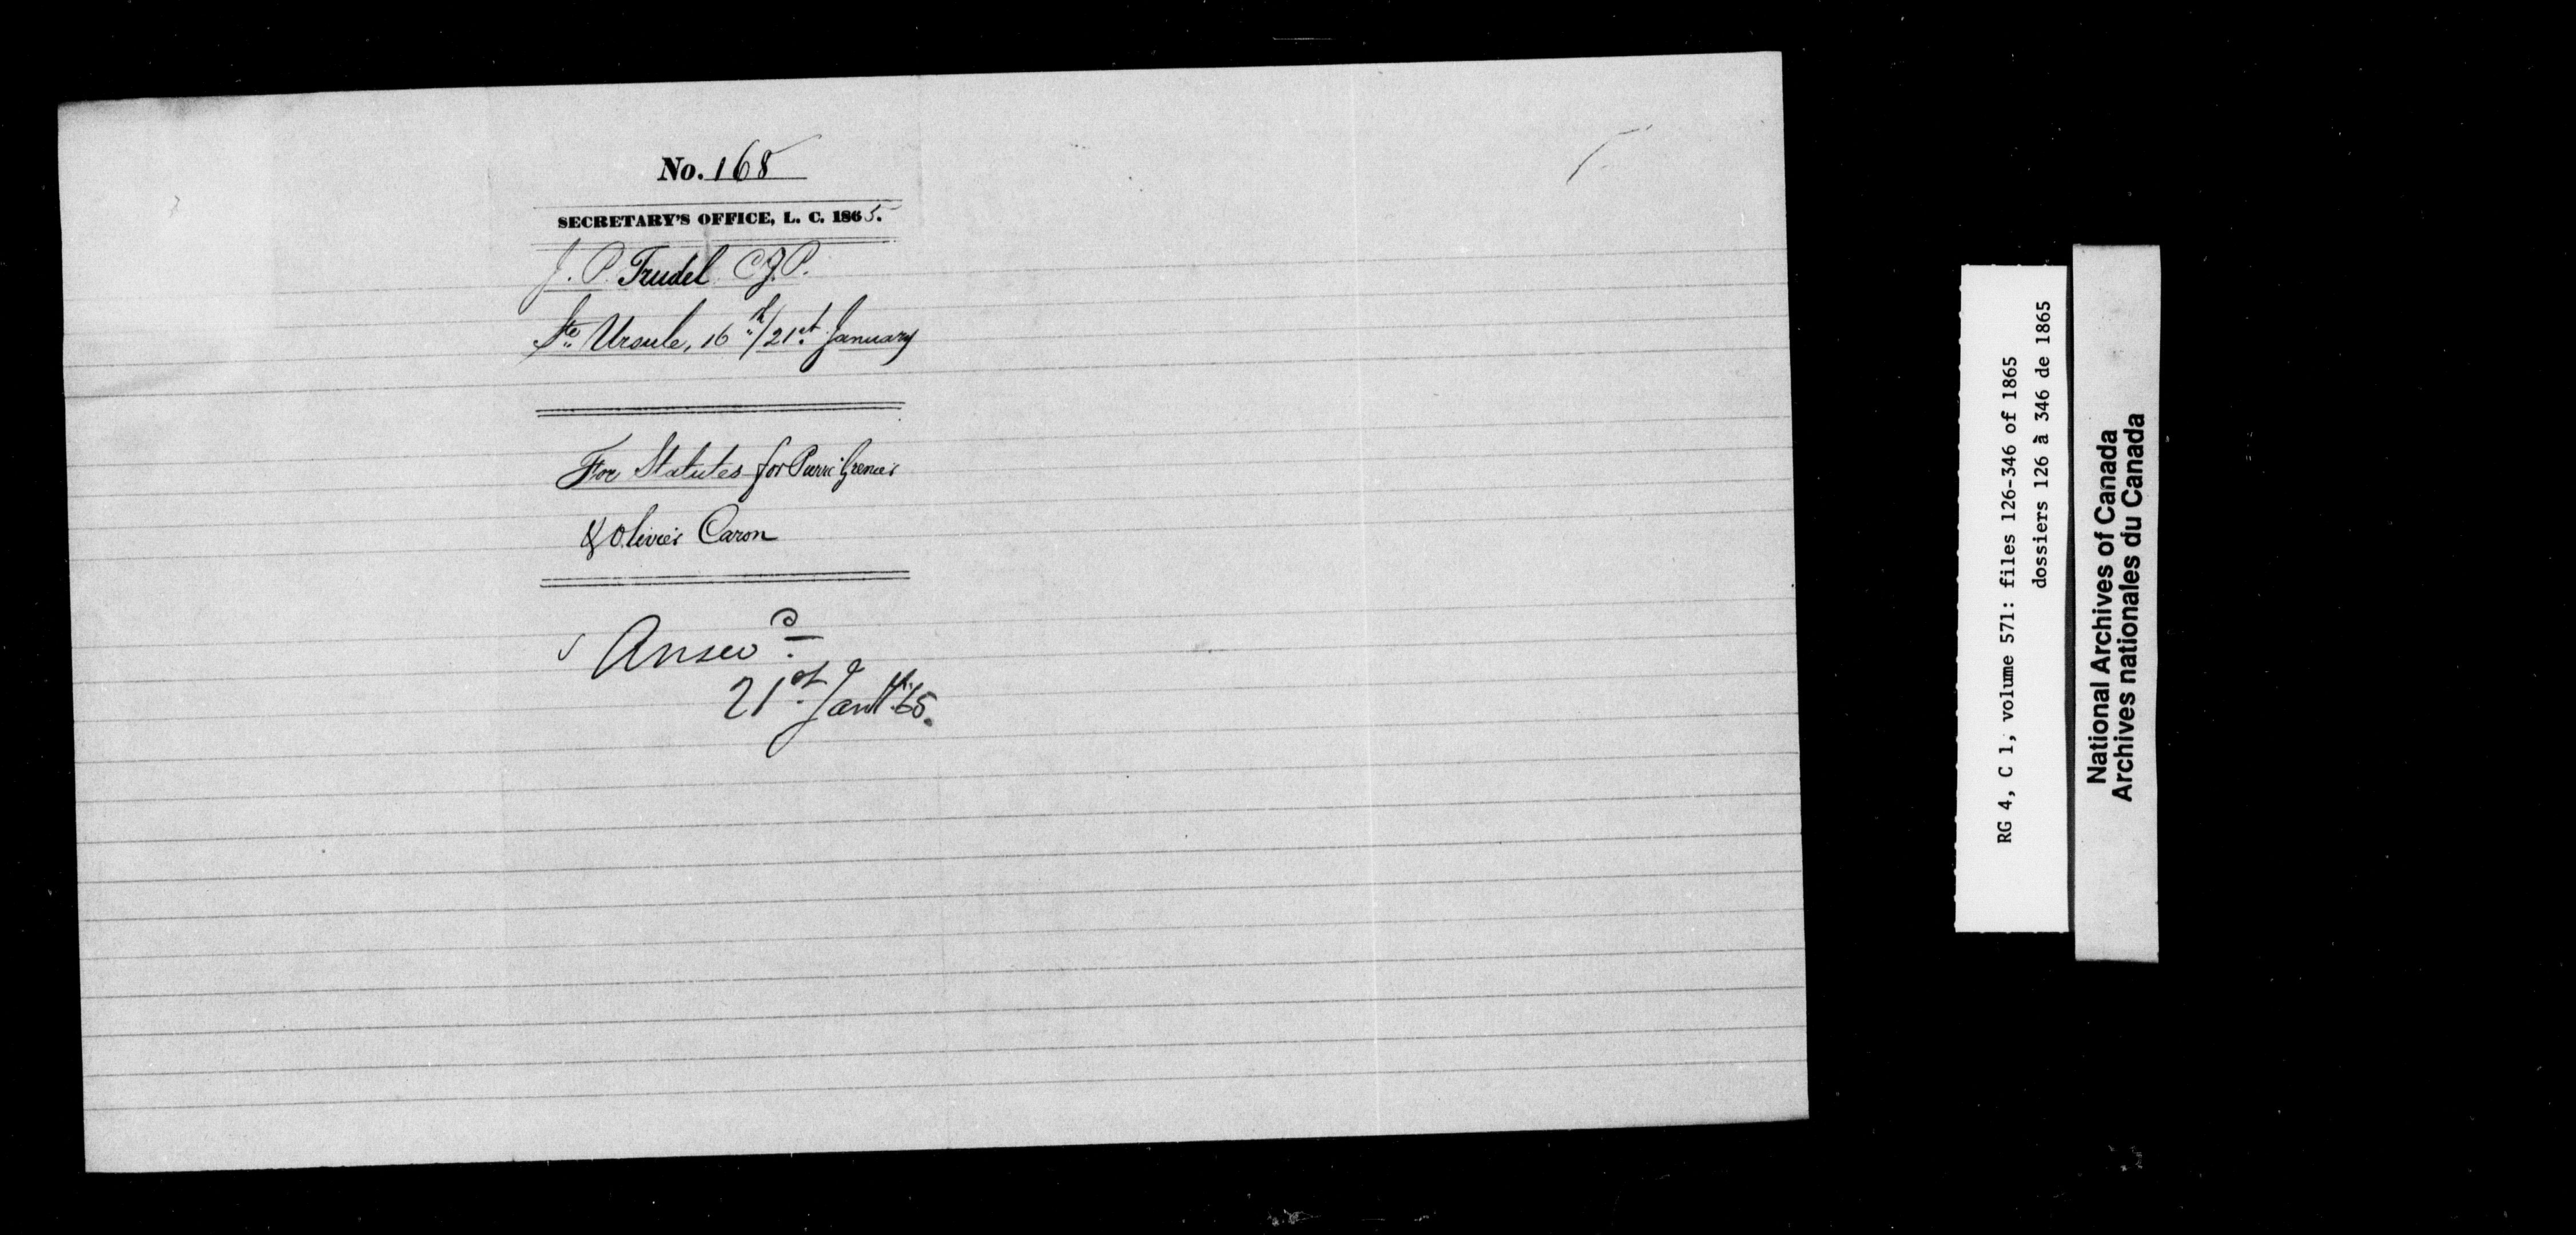 No. 168
SECRETARY'S OFFICE, L. C. 1865.
J. P. Trudel C.J.P.
Ste Ursule, 16th/21st January
For Statutes for Pierre Grenier
& Olivier Caron
Answd
21st Jany. 65.
RG 4, C 1, volume 571: files 126-346 of 1865
dossiers 126 à 346 de 1865
National Archives of Canada
Archives nationales du Canada